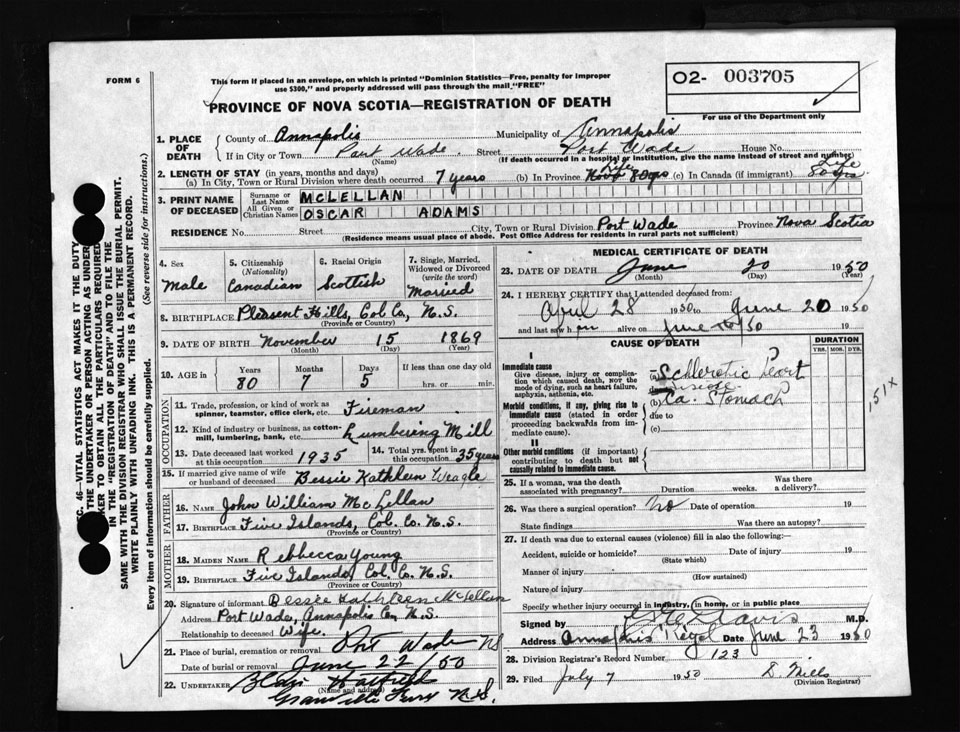 FORM 6
This form if placed in an envelope, on which is printed "Dominion Statistics—Free, penalty for improper
use $300," and properly addressed will pass through the mail "FREE"
O2- 003705
For use of the Department only
PROVINCE OF NOVA SCOTIA—REGISTRATION OF DEATH
1. PLACE OF DEATH
County of Annapolis Municipality of Annapolis
If in City or Town Port Wade. Street Port Wade House No.
(Name) (If death occurred in a hospital or institution, give the name instead of street and number)
2. LENGTH OF STAY (in years, months and days)
(a) In City, Town or Rural Division where death occurred 7 years (b) In Province Life 80 yrs (c) In Canada (if immigrant) Life 80 yrs
3. PRINT NAME OF DECEASED
Surname or Last Name MCLELLAN
All Given or Christian Names OSCAR ADAMS
RESIDENCE No. Street City, Town or Rural Division Port Wade Province Nova Scotia
(Residence means usual place of abode. Post Office Address for residents in rural parts not sufficient)
4. Sex
Male
5. Citizenship
(Nationality)
Canadian
6. Racial Origin
Scottish
7. Single, Married,
Widowed or Divorced
(write the word)
Married
8. BIRTHPLACE Plesent Hills, Col Co., N.S.
(Province or Country)
9. DATE OF BIRTH November 15 1869
(Month) (Day) (Year)
10. AGE in Years Months Days If less than one day old
80 7 5 hrs. or min.
OCCUPATION
11. Trade, profession, or kind of work as
spinner, teamster, office clerk, etc. Fireman
12. Kind of industry or business, as cotton-
mill, lumbering, bank, etc. Lumbering Mill
13. Date deceased last worked
at this occupation 1935
14. Total yrs. spent in
this occupation 35 years
15. If married give name of wife
or husband of deceased Bessie Kathleen Weagle
FATHER
16. NAME John William McLellan
17. BIRTHPLACE Five Islands, Col. Co. N.S.
(Province or Country)
MOTHER
18. MAIDEN NAME Rebbecca Young
19. BIRTHPLACE Five Islands, Col. Co. N.S.
(Province or Country)
20. Signature of informant Bessie Kathleen McLellan
Address Port Wade, Annapolis Co, N.S.
Relationship to deceased Wife.
21. Place of burial, cremation or removal Port Wade NS
Date of burial or removal June 22/50
22. UNDERTAKER
(Name and address)
Granville Ferry N.S.
MEDICAL CERTIFICATE OF DEATH
23. DATE OF DEATH June 20 1950
(Month) (Day) (Year)
24. I HEREBY CERTIFY that I attended deceased from:
April 28 1950 to June 20 1950
and last saw h im alive on June 50 19
CAUSE OF DEATH
DURATION
YRS. MOS. DYS.
I
Immediate cause
Give disease, injury or complica-
tion which caused death, NOT the
mode of dying, such as heart failure,
asphyxia, asthenia, etc.
(a) Schlerotic heart ?
disease
Morbid conditions, if any, giving rise to
immediate cause (stated in order
proceeding backwards from im-
mediate cause).
(b) Ca. Stomach
due to
(c)
151x
II
Other morbid conditions (if important)
contributing to death but not
causally related to immediate cause.
25. If a woman, was the death
associated with pregnancy? Duration weeks. Was there
a delivery?
26. Was there a surgical operation? No Date of operation 19
State findings Was there an autopsy?
27. If death was due to external causes (violence) fill in also the following:
Accident, suicide or homicide? Date of injury 19
(State which)
Manner of injury
(How sustained)
Nature of injury
Specify whether injury occurred in industry, in home, or in public place
Signed by Davis M.D.
Address Annapolis Royal Date June 23 1950
28. Division Registrar's Record Number 123
29. Filed July 7 1950 S. Mills
(Division Registrar)
C. 46—VITAL STATISTICS ACT MAKES IT THE DUTY
THE UNDERTAKER OR PERSON ACTING AS UNDER-
KER TO OBTAIN ALL THE PARTICULARS REQUIRED
IN THE "REGISTRATION OF DEATH" AND TO FILE THE
SAME WITH THE DIVISION REGISTRAR WHO SHALL ISSUE THE BURIAL PERMIT.
WRITE PLAINLY WITH UNFADING INK. THIS IS A PERMANENT RECORD.
Every item of information should be carefully supplied. (See reverse side for instructions.)